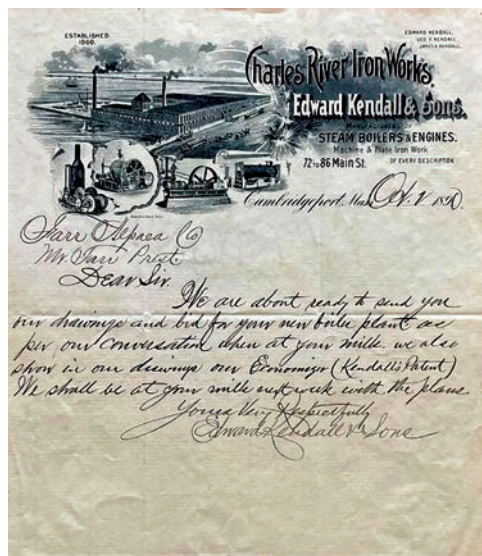 ESTABLISHED
1860.
EDWARD KENDALL,
GEO. F. KENDALL,
JAMES H. KENDALL.
Charles River Iron Works.
Edward Kendall & Sons.
MANUFACTURERS OF
STEAM BOILERS & ENGINES.
Machine & Plate Iron Work
OF EVERY DESCRIPTION
72 to 86 Main St.
Cambridgeport, Mass. Oct. 2 1890.
Farr Alpaca Co
Mr. Farr Prest.
Dear Sir.
We are about ready to send you
our drawings and bid for your new boiler plant as
per our conversation when at your mill. we also
show in our drawings our Economizer (Kendall's Patent)
We shall be at your mill next week with the plans.
Yours Very Respectfully
Edward Kendall & Sons